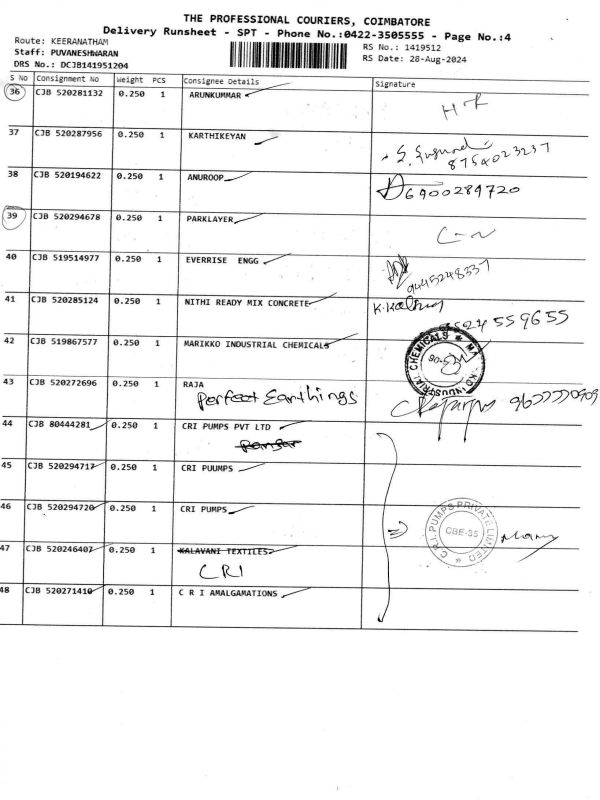 THE PROFESSIONAL COURIERS, COIMBATORE
Delivery Runsheet - SPT - Phone No.:0422-3505555 - Page No.:4
Route: KEERANATHAM
Staff: PUVANESHWARAN
DRS No.: DCJB141951204
RS No.: 1419512
RS Date: 28-Aug-2024
S No Consignment No Weight PCS Consignee Details Signature
36 CJB 520281132 0.250 1 ARUNKUMMAR
37 CJB 520287956 0.250 1 KARTHIKEYAN 8754023237
38 CJB 520194622 0.250 1 ANUROOP 6900289720
39 CJB 520294678 0.250 1 PARKLAYER
40 CJB 519514977 0.250 1 EVERRISE ENGG 9445248337
41 CJB 520285124 0.250 1 NITHI READY MIX CONCRETE
42 CJB 519867577 0.250 1 MARIKKO INDUSTRIAL CHEMICALS
43 CJB 520272696 0.250 1 RAJA
Perfect Earthings
44 CJB 80444281 0.250 1 CRI PUMPS PVT LTD
45 CJB 520294717 0.250 1 CRI PUUMPS
46 CJB 520294720 0.250 1 CRI PUMPS
C.R.I. PUMPS PRIVATE LIMITED
CBE-35
47 CJB 520246407 0.250 1 KALAVANI TEXTILES
CRI
48 CJB 520271410 0.250 1 C R I AMALGAMATIONS